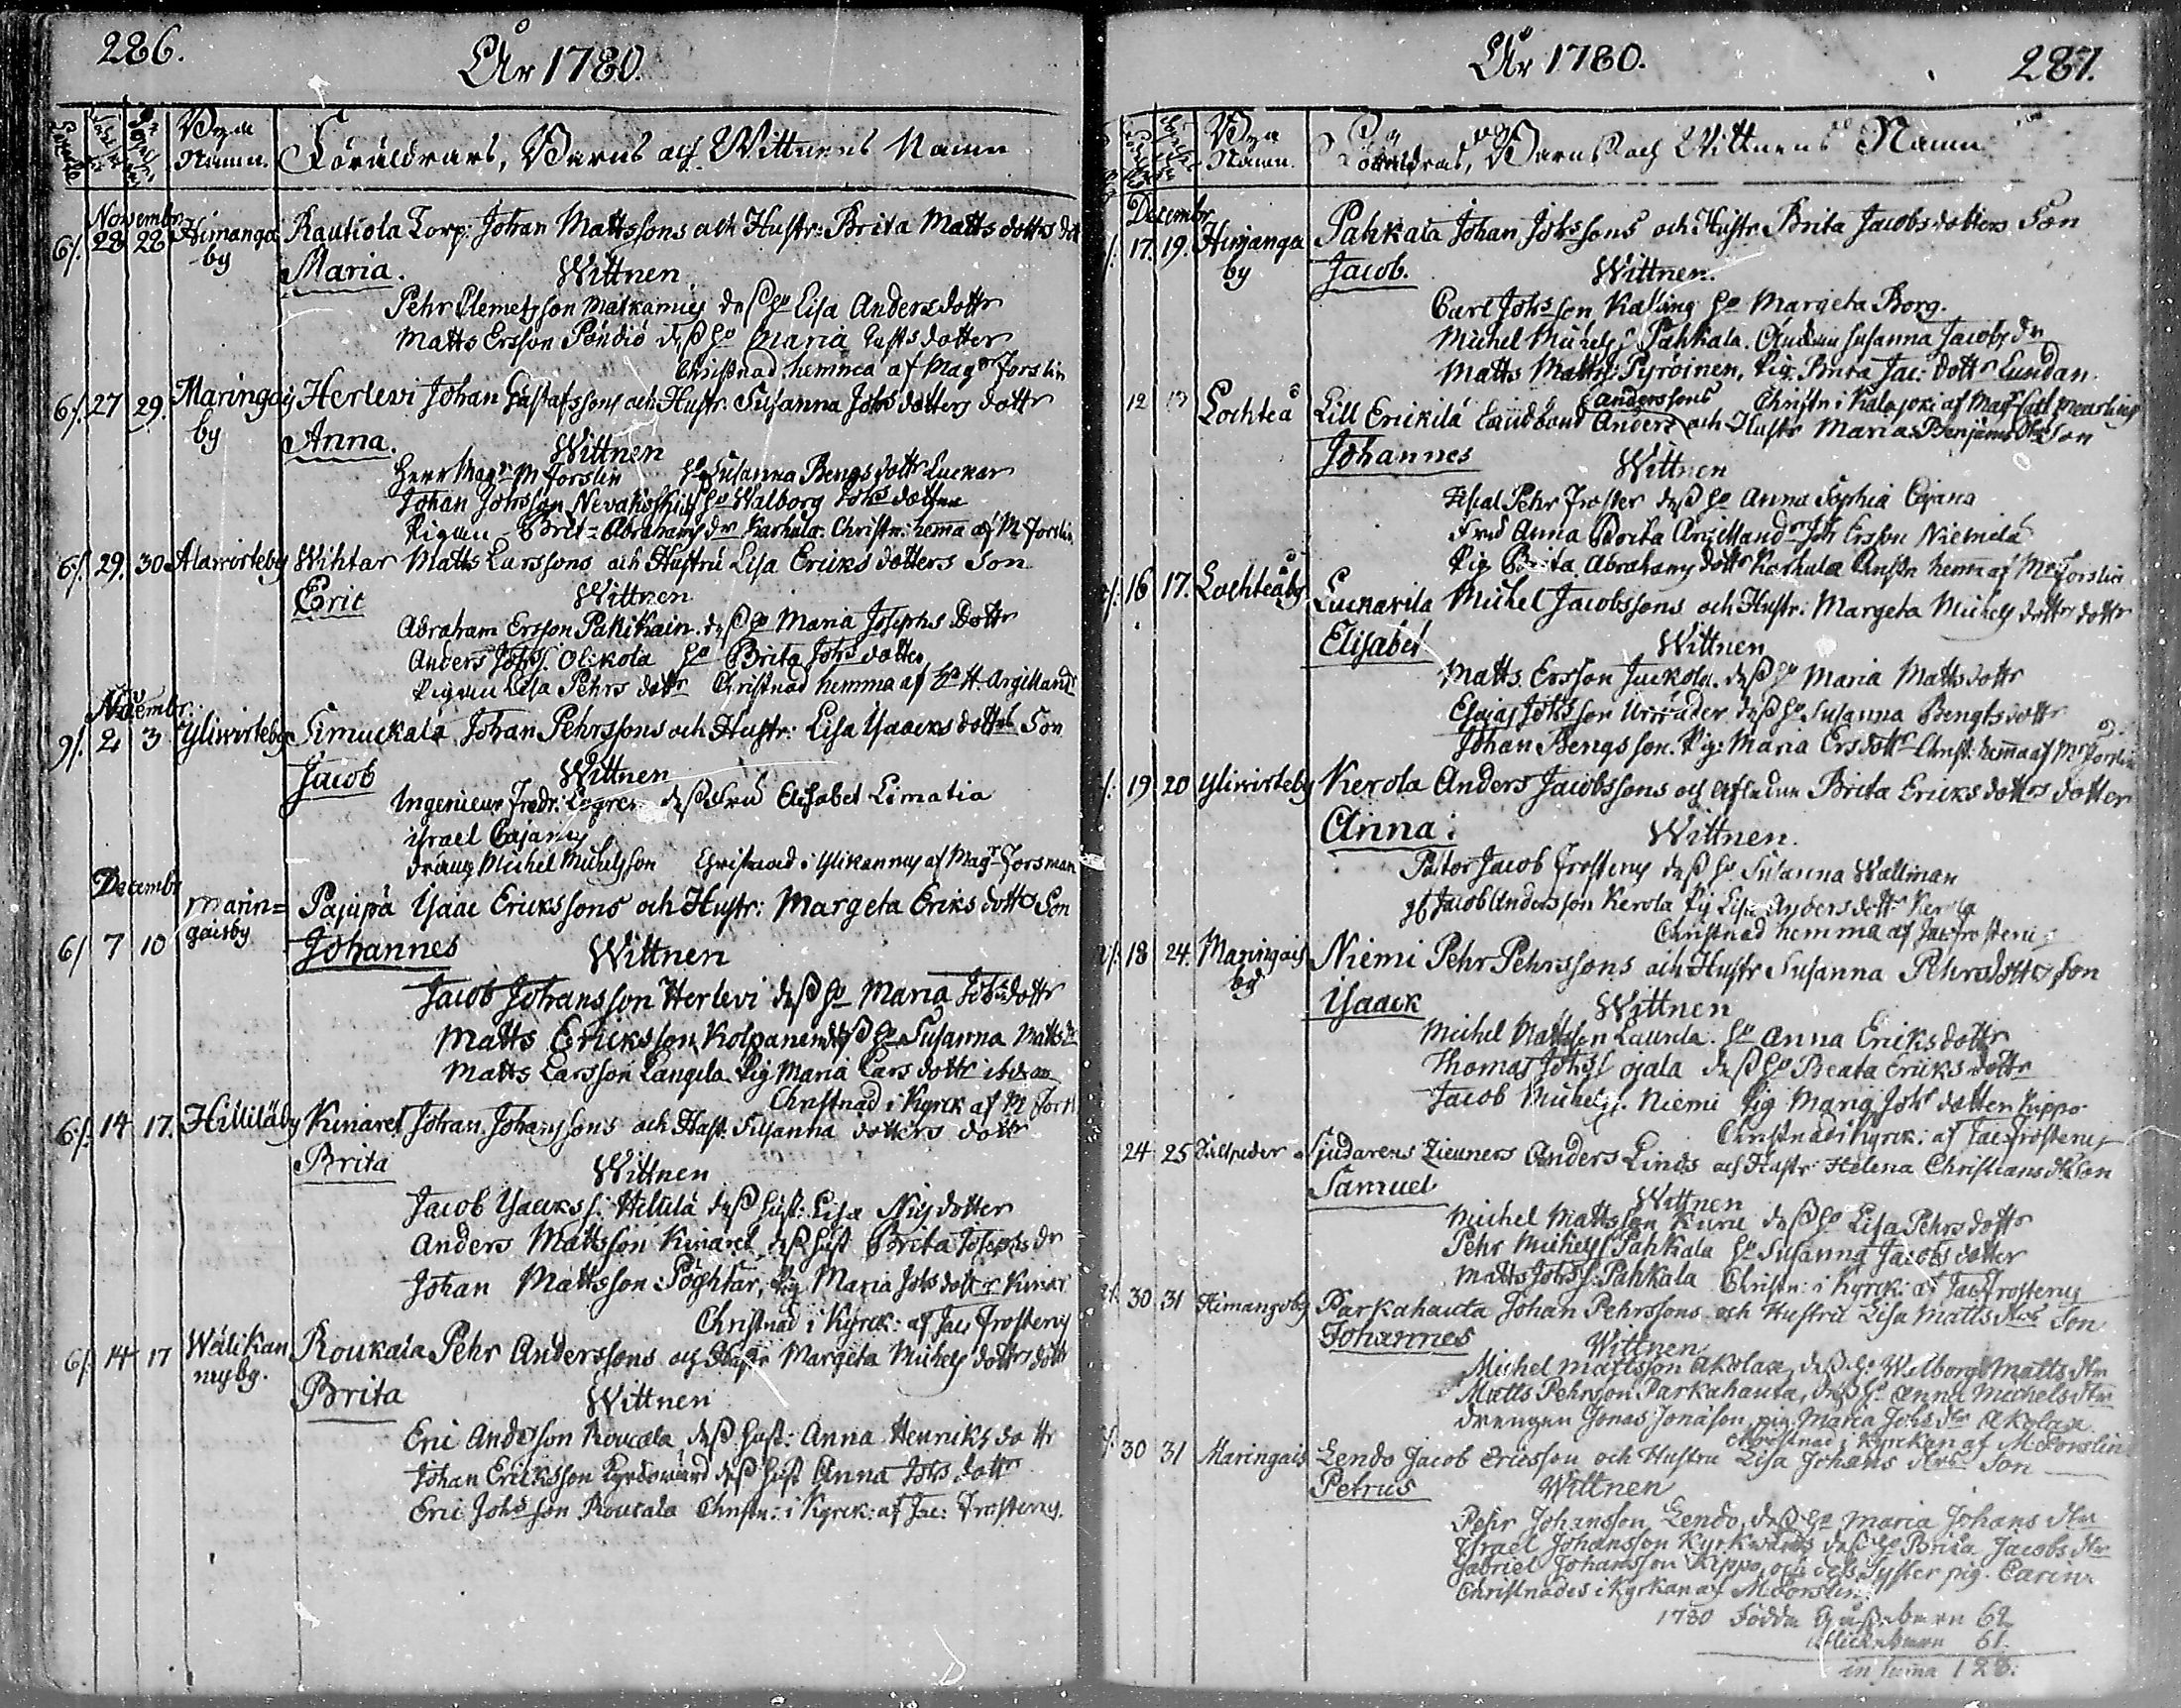 286.
År 1780.
Byn
Namn.
Föräldrars, Barns och Wittnens Namn
Novembr
6/. 28 28 Himanga Rautiola Torp: Johan Mattssons och Hustr: Brita Matts dotters dott
by
Maria. Wittnen
Pehr Clemetsson Matkamies dess ho Lisa Andersdottr
Matts Ersson Pöndiö dess ho Maria dotter
Christnad hemma af Magr Forslin
6/. 27 29. Maringais Herlevi Johan Gustafssons och Hustr. Susanna Johs dotters dottr
by
Anna. Wittnen
Herr Magr M Forslin ho Susanna Bengsdottr Luckar
Johan Johsson Nevakoski ho Walborg Johs dotter
Pigan Brit= Abrahams dr Karhula. Christn: hema af M Forslin
6/. 29. 30 Alawirteby Wihtar Matts Larssons och Hustru Lisa Ericks dotters Son
Eric Wittnen
Abraham Ersson Pakikain. dess ho Maria Josephs Dottr
Anders Johss. Olikola ho Brita Johs dotter
Pigan Lisa Pehrs dottr Christnad hemma af H. Argilland
Novembr.
9/. 2 3 Yliwirteby Simuckala Johan Pehrssons och Hustr: Lisa Ysaacks dottrs Son
Jacob Wittnen
Ingenieur Fredr: Legren dess Fru Elisabet Limatia
Ysrael Cajanus
dräng Michel Michelsson Christnad i Ylikannus af Magr Forsman
Decembr
marin=
gaisby
6/ 7 10 Pajupä Ysaac Erickssons och Hustr: Margeta Eriks dotters Son
Johannes Wittnen
Jacob Johansson Herlevi dess ho Maria Johsdottr
Matts Ericksson Kolpanen dess ho Susanna Matts dr
Matts Larsson Langila Pig Maria Lars dottr ibidem
Christnad i Kyrck af M Forsl
6/. 14 17. Hilliläby Kinaret Johan Johanssons och Hust. Susanna dotters dottr
Brita Wittnen
Jacob Ysacks s: Hillilä dess hust: Lisa Nilsdotter
Anders Mattsson Kinaret dess hust Brita Josephs dr
Johan Mattsson Pöghtar, Pig Maria Johs dottr Kinar
Christnad i Kyrck: af Jac Frosterus
6/. 14 17 Wälikan Roukala Pehr Anderssons och Hustr Margeta Michels dotters dottr
nusby.
Brita Wittnen
Eric Andersson Roucala dess hust: Anna Henriks dottr
Johan Ericksson Kyrckowärd dess hust Anna Johs dottr
Eric Johsson Roucala Christn: i Kyrck: af Jac: Frosterus.
År 1780.
287.
Byn
Namn.
Föräldrars, Barns och Wittnens Namn
Decembr
/. 17. 19. Himanga Pahkala Johan Johssons och Hustr. Brita Jacobs dotters Son
by
Jacob. Wittnen.
Carl Johsson Kalling ho Margeta Borg.
Michel Michelss Pahkala. Susanna Jacobs dr
Matts Mattss: Pyröinen, Pig: Brita Jac: dottr Lundan.
Christn i Kalajoki af Magr
anderssons
12 Lochteå Lill Erickilä Landbond Anders och Hustr Maria Benjams Son
Johannes Wittnen
Pehr Froster dess ho Anna Sophia Cajana
Fru Anna Brita Argilland Johs Ersson Niemelä
Pig Brita Abrahams dottr Karhula hemma af Mr Forslin
/. 16 17. Lochteåby Luckarila Michel Jacobssons och Hustr: Margeta Michels dottrs dottr
Elisabet Wittnen
Matts Ersson Juckola. dess ho Maria Mattsdottr
Esaias Johsson dess ho Susanna Bengtsdottr
Johan Bengsson. Pig: Maria Ersdottr Christ: hemma af Mr Forslin
/. 19 20 Yliwirteby Kerola Anders Jacobssons och aflidna Brita Ericks dotters dotter
Anna: Wittnen.
Pastor Jacob Frosterus dess ho Susanna Wallman
Jacob Andersson Kerola Pig Lisa Andersdottr Kerola
Christnad hemma af Jac Frosterus
/. 18 24. Maringais Niemi Pehr Pehrssons och Hustr Susanna Pehrsdotters son
by
Ysaack Wittnen
Michel Mattsson Laurila. ho Anna Ericksdottr
Thomas Johss ojala dess ho Beata Ericks dottr
Jacob Michelss. Niemi Pig Maria Johs dotter Kippo
Christnad i Kyrck: af Jac: Frosterus
24 25 Sjudarens Zieuners Anders Linds och Hustr: Helena Christians dtrs son
Samuel
Wittnen
Michel Mattsson Kuru dess ho Lisa Pehrs dottr
Pehr Michelss Pahkala ho Susanna Jacobs dotter
Matts Johss: Pahkala Christn: i Kyrck: af Jac Frosterus
30 31 Himangoby Parkahauta Johan Pehrssons och Hustru Lisa Matts dtrs Son
Johannes Wittnen
Michel Mattsson Akolax, dess ho Walborg Matts dtr
Matts Pehrson Parkahauta, dess ho Anna Michels dtr
drengen Jonas Jonason, pig. Maria Johs dtr Akolax
Christnad i Kyrckan af M. Forslin
30 31 Maringais Lendo Jacob Ericsson och Hustru Lisa Johans dtrs Son
Petrus Wittnen
Pehr Johansson Lendo, dess ho Maria Johans dtr
Israel Johansson Kyrkwärd dess ho Brita Jacobs dtr
Gabriel Johansson Kippo, och dess Syster pig. Carin.
Christnades i Kyrkan af M. Forslin.
1780 Födde Gossebarn 62
Flickebarn 61.
in suma 123.